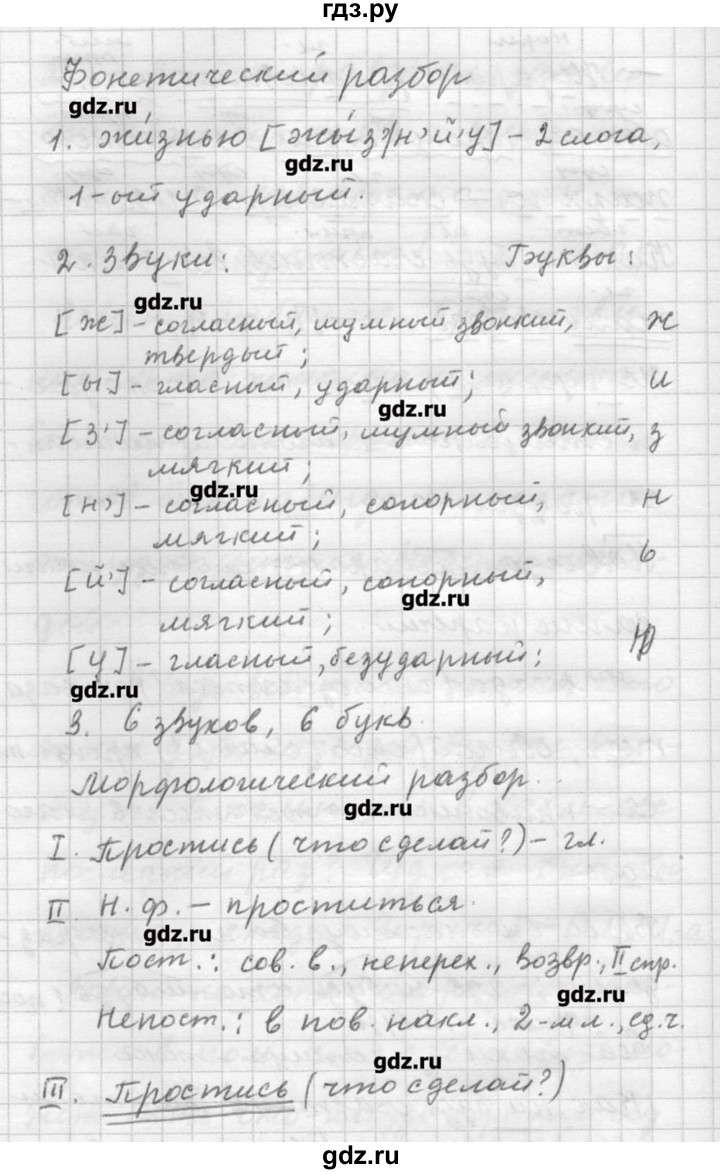 гдз.ру
Фонетический разбор
gdz.ru
1. жи́знью [жы́з'|н'й'у] – 2 слога,
gdz.ru
1-ый ударный.
2. Звуки: Буквы:
gdz.ru
[ж] – согласный, шумный звонкий, ж
твердый;
[ы] – гласный, ударный; и
gdz.ru
[з'] – согласный, шумный звонкий, з
мягкий;
gdz.ru
[н'] – согласный, сонорный, н
мягкий;
ь
[й'] – согласный, сонорный,
gdz.ru
мягкий;
[у] – гласный, безударный: ю
gdz.ru
3. 6 звуков, 6 букв.
Морфологический разбор.
gdz.ru
I. Простись (что сделай?) – гл.
II Н. ф. – проститься.
gdz.ru
Пост.: сов. в., неперех., возвр., II спр.
gdz.ru
Непост.: в пов. накл., 2-м л., ед. ч.
gdz.ru
III. Простись (что сделай?)
gdz.ru